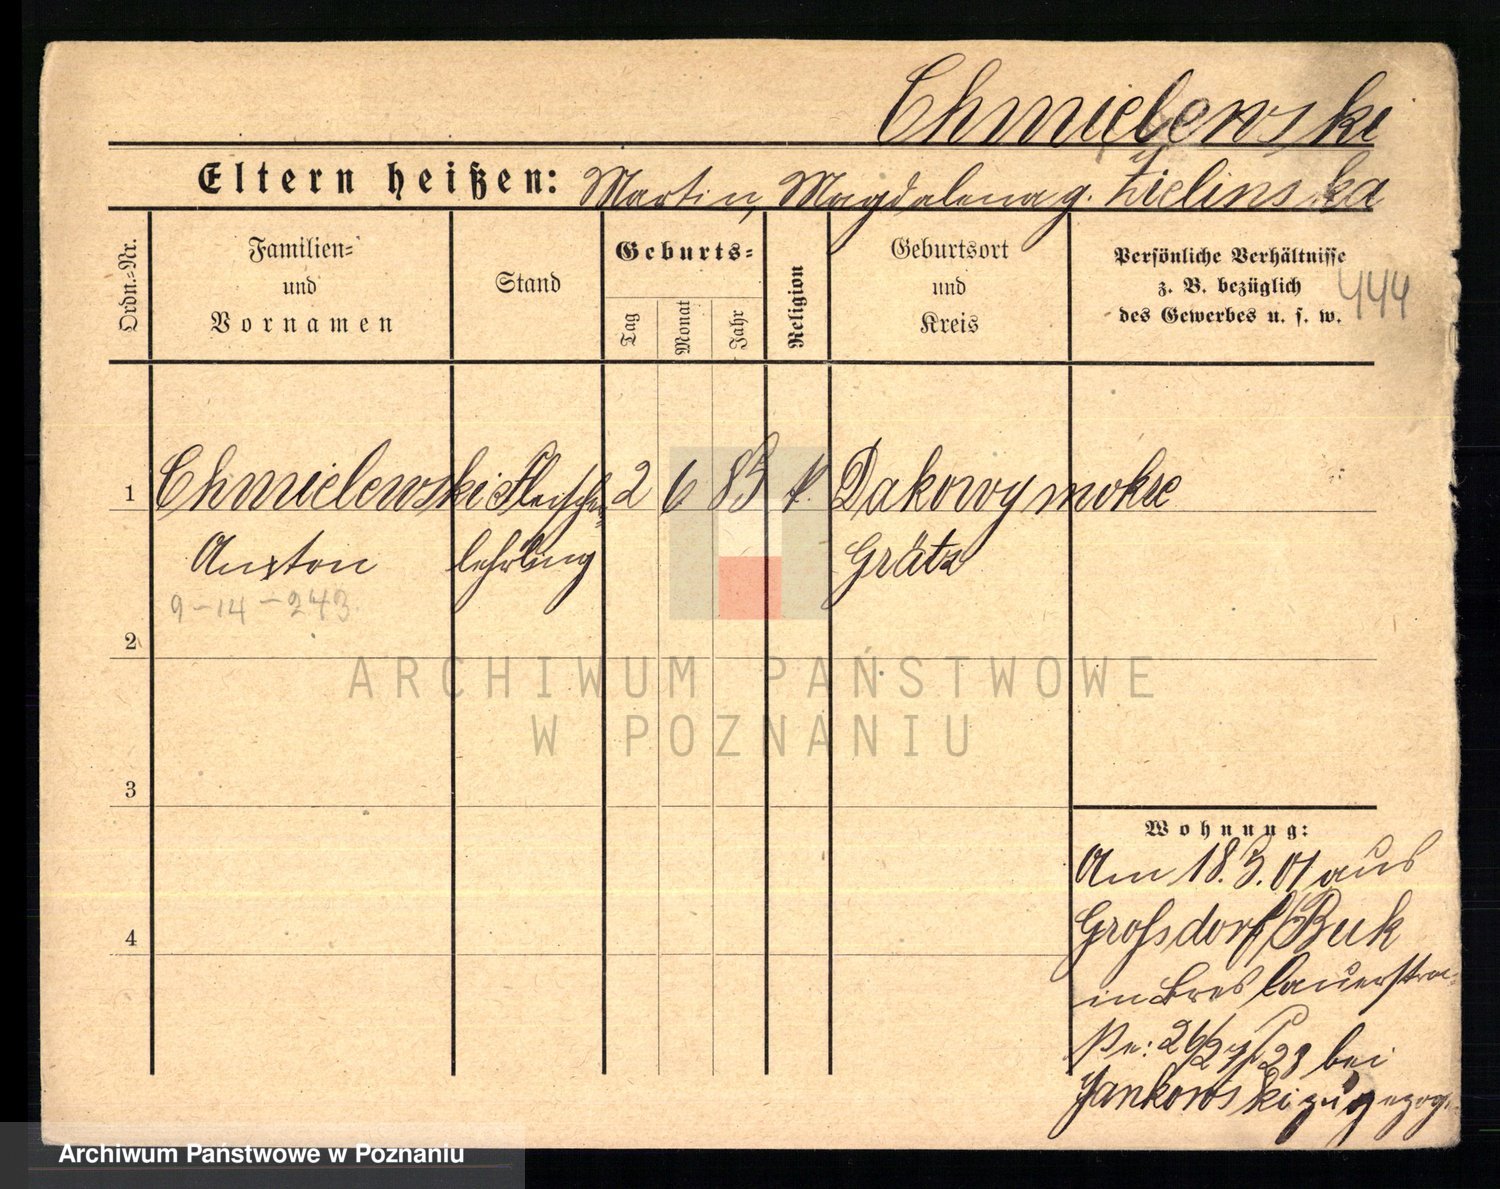 Chmielewski
Eltern heißen: Martin, Magdalena g. Zielinska
Ordn.-Nr.
Familien-
und
Vornamen
Stand
Geburts-
Tag
Monat
Jahr
Religion
Geburtsort
und
Kreis
Persönliche Verhältnisse
z. B. bezüglich
des Gewerbes u. s. w.
444
1 Chmielewski Fleischer- 2 6 85 k. Dakowy mokre
Anton lehrling Grätz
9-14-243
2
3
4
Wohnung:
Am 18.5.01 aus
Grossdorf/Buk
in Breslauerstra-
26/27/28 bei
Jankowski zugezog.
ARCHIWUM PAŃSTWOWE
W POZNANIU
Archiwum Państwowe w Poznaniu